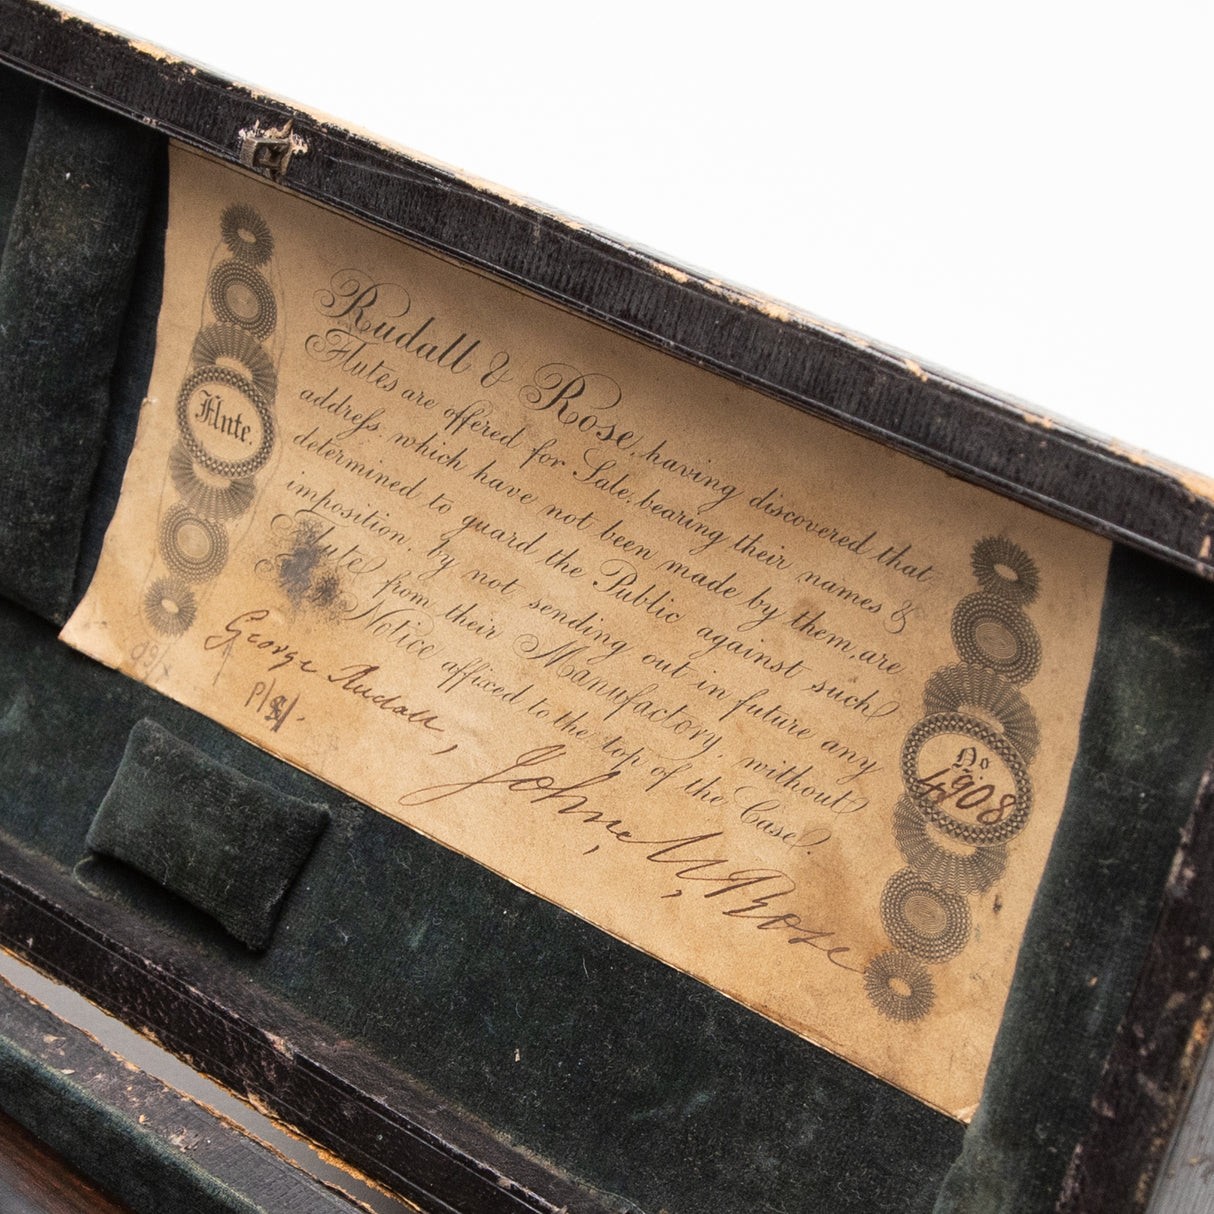 Flute.
Rudall & Rose, having discovered that
Flutes are offered for Sale, bearing their names &
addreſs, which have not been made by them, are
determined to guard the Public against such
imposition, by not sending out in future any
Flute from their Manufactory, without
Notice affixed to the top of the Case.
George Rudall,
John M Rose
No
4908